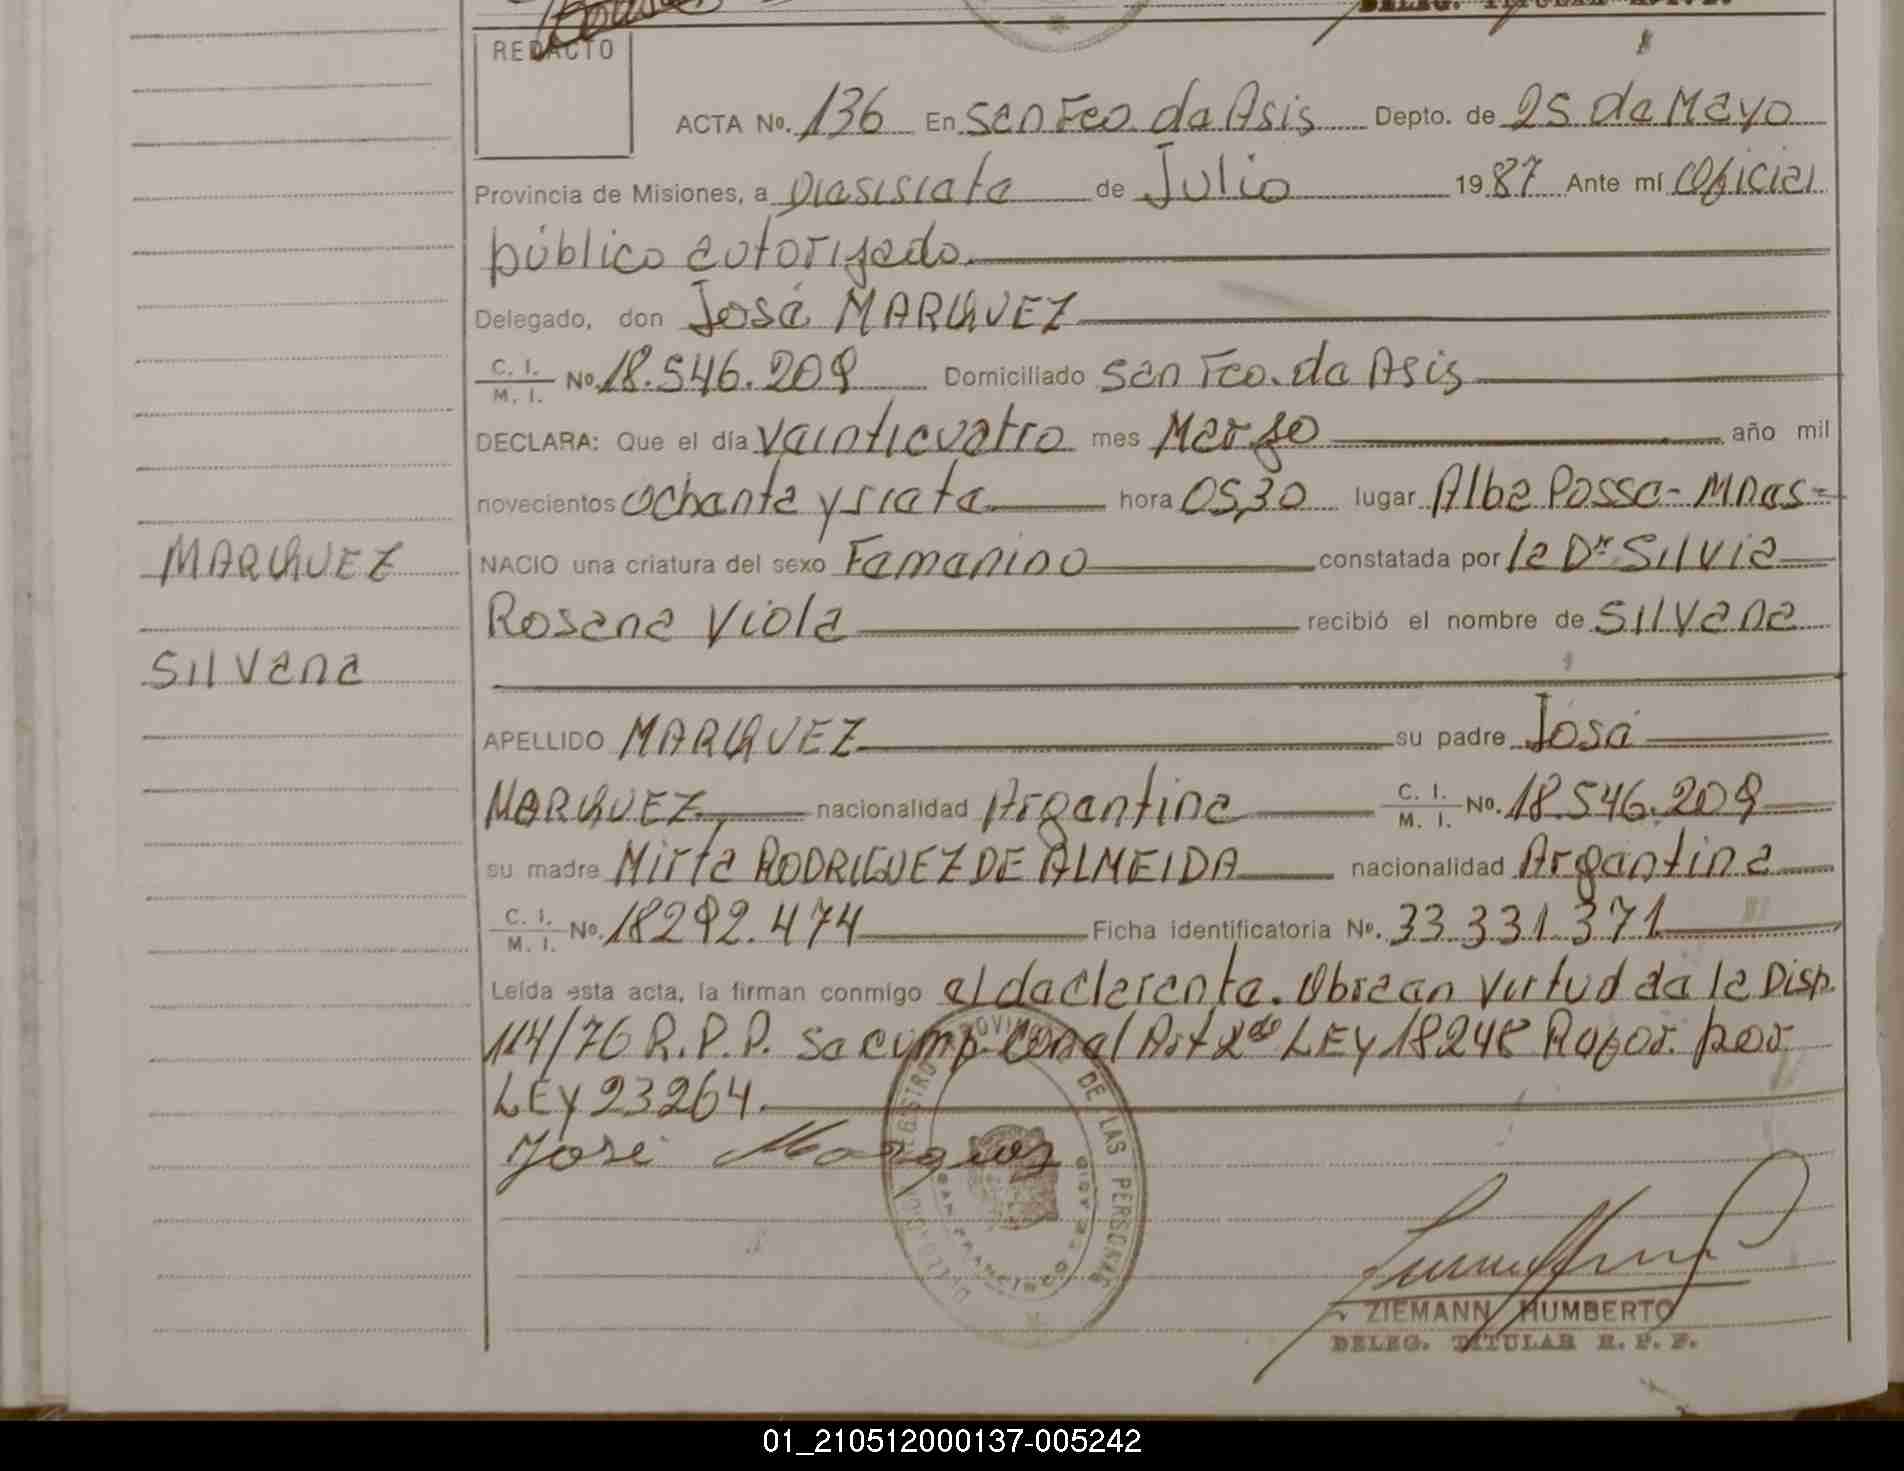 DELEG. TITULAR R. P. P.
REDACTO
ACTA Nº. 136 En San Fco. de Asis Depto. de 25 de Mayo
Provincia de Misiones, a Diesisiete de Julio 1987 Ante mí Oficial
público autorizado.
Delegado, don José MARQUEZ
C. I. / M. I. Nº 18.546.209 Domiciliado San Fco. de Asis
DECLARA: Que el día veinticuatro mes Marzo año mil
novecientos Ochenta y siete hora 05,30 lugar Alba Posse- Mnes-
MARQUEZ
NACIO una criatura del sexo Femenino constatada por la Dra Silvia
Rosana Viola recibió el nombre de Silvana
Silvana
APELLIDO MARQUEZ su padre José
MARQUEZ nacionalidad Argentina C. I. / M. I. Nº. 18.546.209
su madre Mirta RODRIGUEZ DE ALMEIDA nacionalidad Argentina
C. I. / M. I. Nº. 18292.474 Ficha identificatoria Nº. 33.331.371
Leída esta acta, la firman conmigo el declarante. Obra en virtud de la Disp.
114/76 R.P.P. Se cump. con el Art 2do LEY 18248 Refor. por
LEY 23264.
José Marquez
REGISTRO PROVINCIAL DE LAS PERSONAS
SAN FRANCISCO
ZIEMANN HUMBERTO
DELEG. TITULAR R. P. P.
01_210512000137-005242